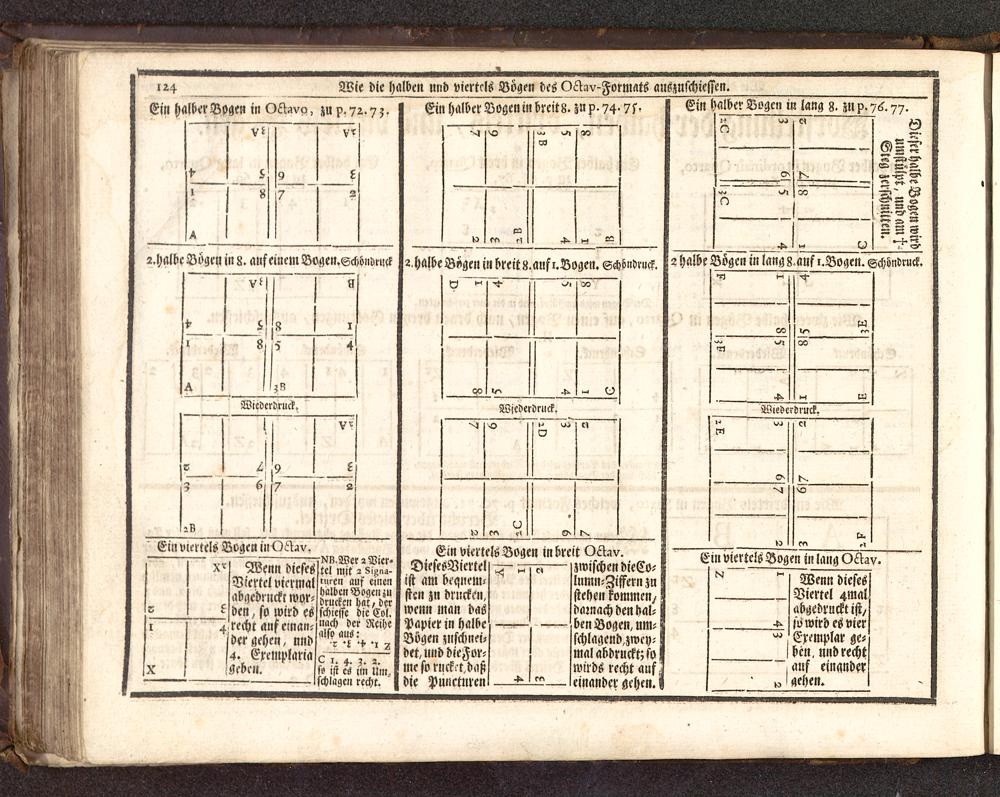 124
Wie die halben und viertels Bögen des Octav-Formats auszuschiessen.
Ein halber Bogen in Octavo, zu p. 72. 73.
A₃ A₂
4 5 6 3
1 8 7 2
A
2. halbe Bögen in 8. auf einem Bogen. Schöndruck.
A₃ B
4 5 8 1
1 8 5 4
A ₃B
Wiederdruck.
A₂
2 7 6 3
3 6 7 2
₂B
Ein viertels Bogen in Octav.
X₂
2 3
1 4
X
Wenn dieses
Viertel viermal
abgedruckt wor-
den, so wird es
recht auf einan-
der gehen, und
4. Exemplaria
geben.
NB. Wer 2 Vier-
tel mit 2 Signa-
turen auf einen
halben Bogen zu
drucken hat, der
schiesse die Col.
nach der Reihe
also aus:
Z 1. 4. 3. 2.
C 1. 4. 3. 2.
so ist es im Um-
schlagen recht.
Ein halber Bogen in breit 8. zu p. 74. 75.
7 6 ₃B 5 8
2 3 ₂B 4 1 B
2. halbe Bögen in breit 8. auf 1. Bogen. Schöndruck.
D 1 4 5 8
8 5 4 1 C
Wiederdruck.
7 6 ₂D 3 2
2 3 ₂C 6 7
Ein viertels Bogen in breit Octav.
Dieses Viertel
ist am bequem-
sten zu drucken,
wenn man das
Papier in halbe
Bögen zuschnei-
det, und die For-
me so rucket, daß
die Puncturen
Y 1 2
4 3
zwischen die Co-
lumn-Ziffern zu
stehen kommen,
darnach den hal-
ben Bogen, um-
schlagend, zwey-
mal abdruckt; so
wirds recht auf
einander gehen.
Ein halber Bogen in lang 8. zu p. 76. 77.
₂C 3 2
6 7
₃C 5 8
4 1 C
Dieser halbe Bogen wird
umstülpt, und am †-
Steg zerschnitten.
2 halbe Bögen in lang 8. auf 1. Bogen. Schöndruck.
F 1 4
8 5 ₃E
₃F 5 8
4 1 E
Wiederdruck.
₂E 3 2
6 7
7 6
2 3 ₂F
Ein viertels Bogen in lang Octav.
Z 1
4
3
2
Wenn dieses
Viertel 4mal
abgedruckt ist,
so wird es vier
Exemplar ge-
ben, und recht
auf einander
gehen.